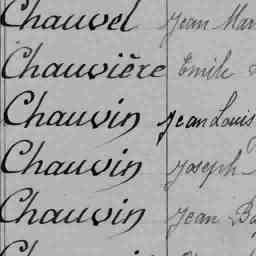 Chauvel Jean Mar
Chauvière Emile
Chauvin Jean Louis
Chauvin Joseph
Chauvin Jean Ba